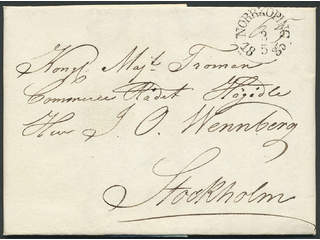 NORRKÖPING
Kongl. Maj:ts Troman
Commerce Rådet Högädle
Herr J. O. Wennberg
Stockholm